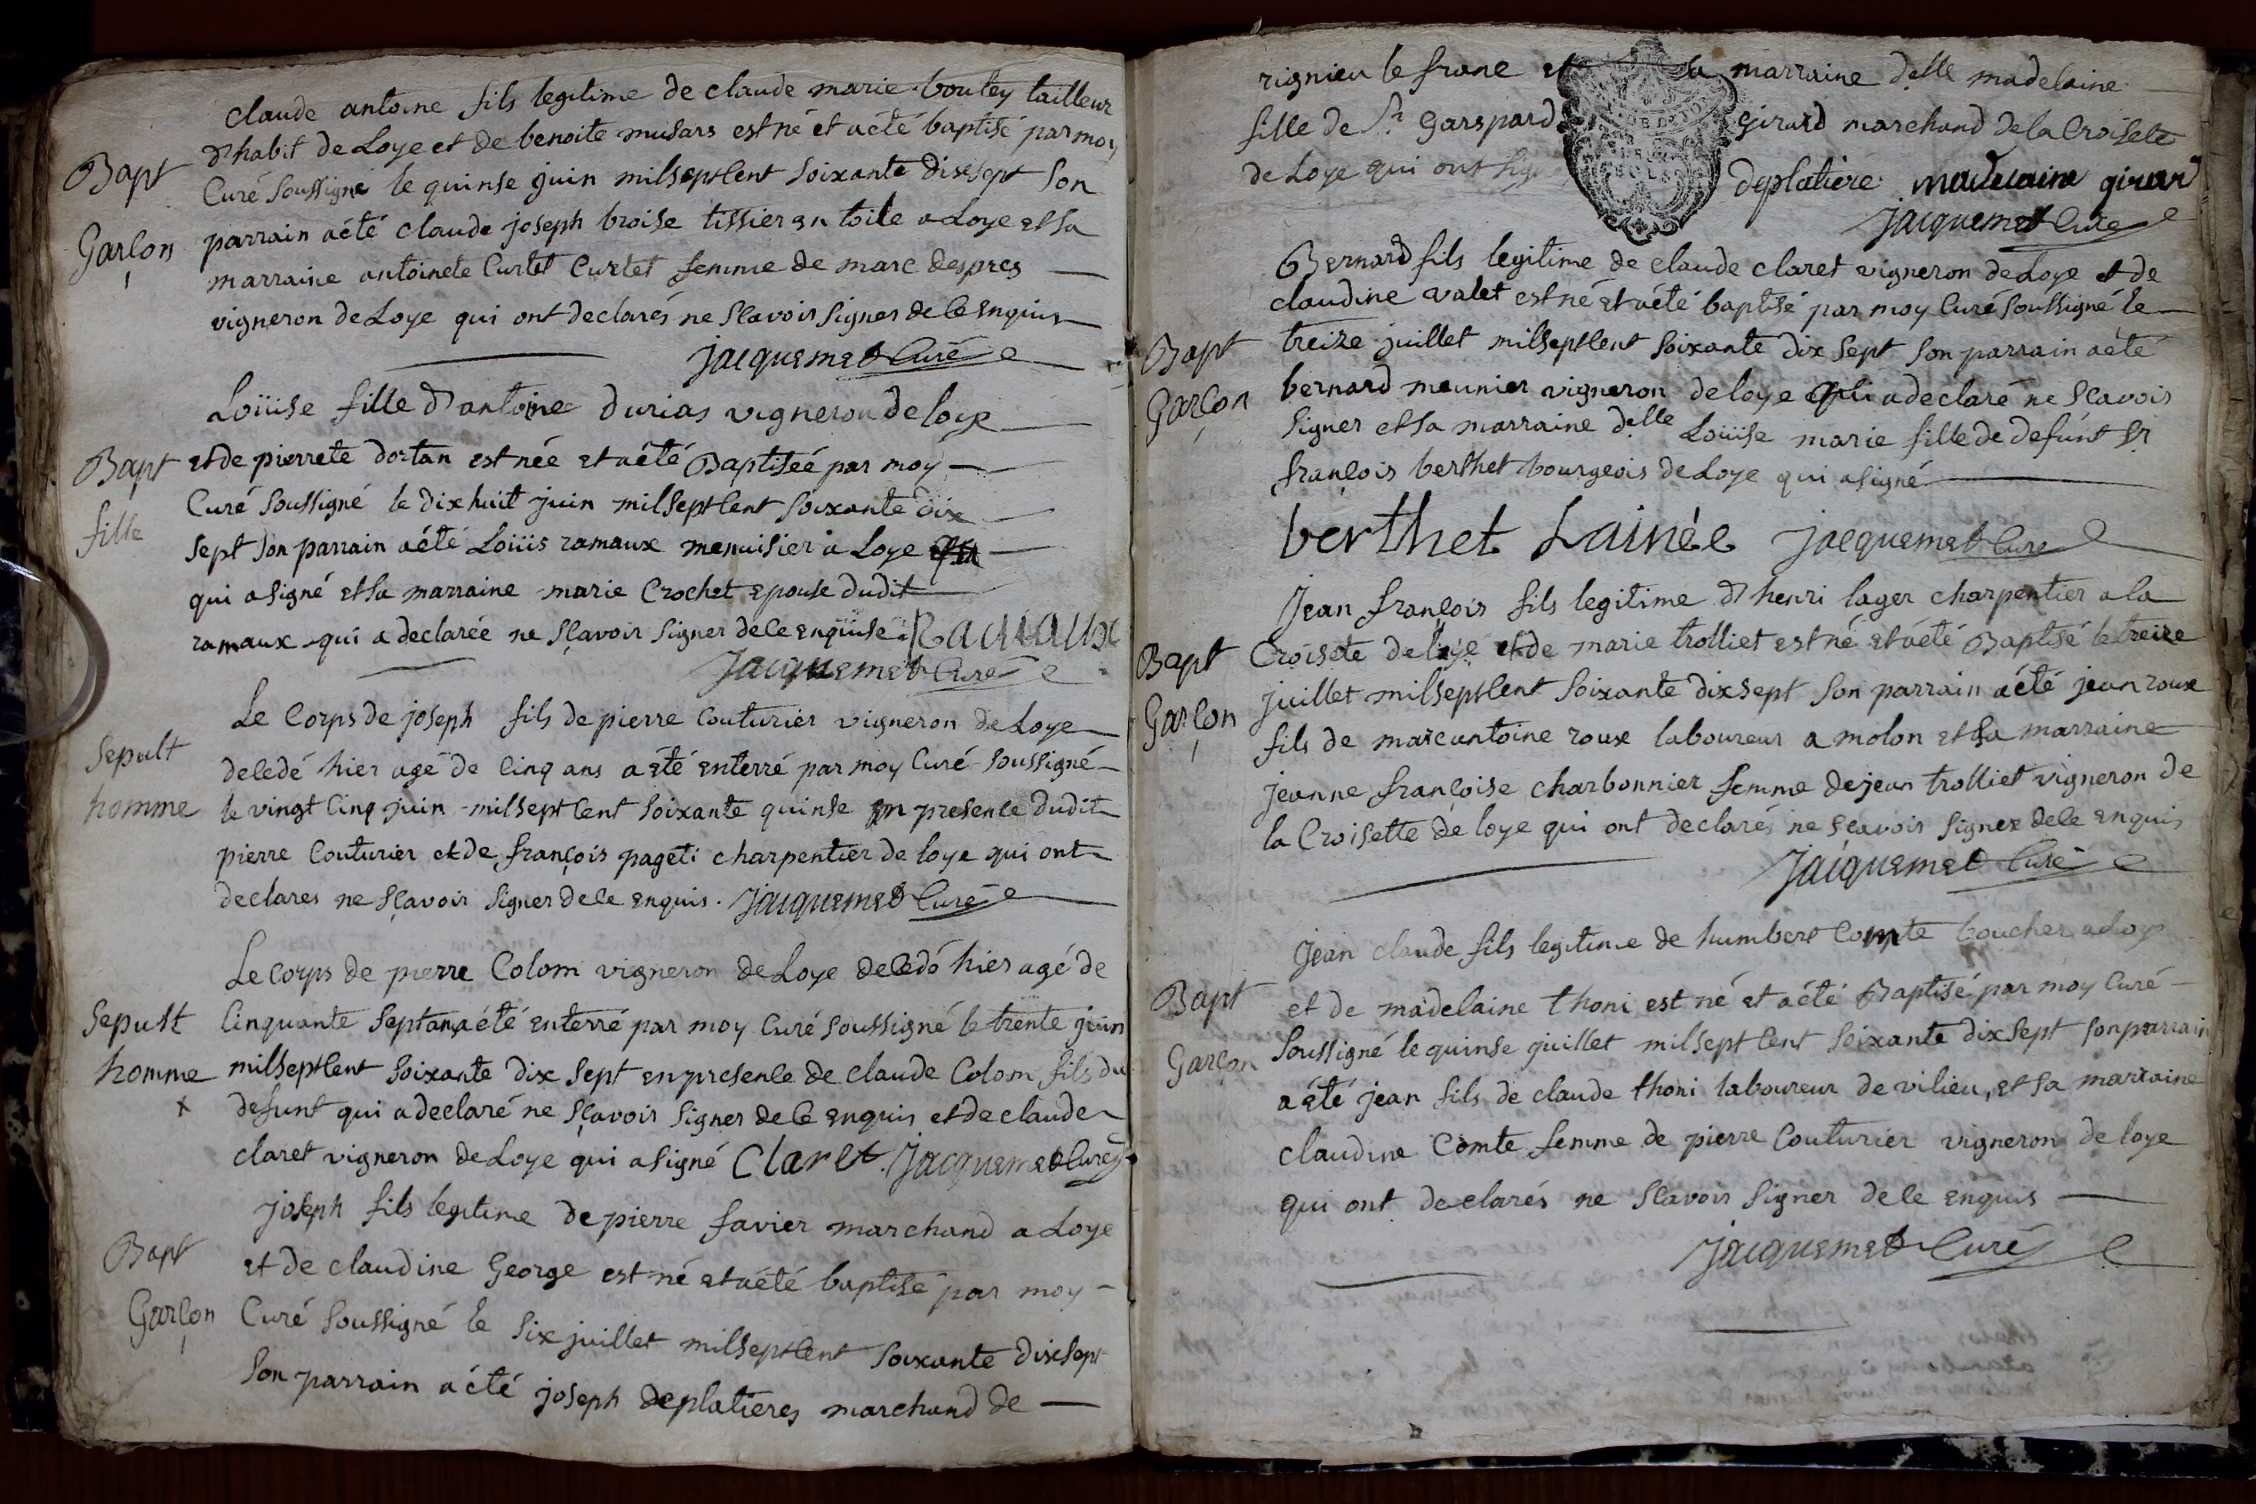 claude antoine fils legitime de claude marie boutey tailleur
d'habit de Loye et de benoite musars est né et a été baptisé par moy
Bapt
Curé soussigné le quinse juin milseptcent soixante dixsept son
Garçon
parrain a été claude joseph broise tissier en toile a Loye et sa
marraine antoinete Curtet Curtet femme de marc despres
vigneron de Loye qui ont declarés ne sçavoir signer de ce enquis
jacquemet Curé
Loüise fille d'antoine durias vigneron de loye
Bapt
et de pierrete dortan est née et a été Baptiseé par moy
Curé soussigné le dix huit juin milseptcent soixante dix
fille
sept son parrain a été Loüis ramaux menuisier a Loye
qui a signé et sa marraine marie Crochet epouse dudit
ramaux qui a declarée ne sçavoir signer de ce enquise. Ramaux
jacquemet Curé
Le Corps de joseph fils de pierre Couturier vigneron de Loye
Sepult
decedé hier agé de Cinq ans a été enterré par moy Curé soussigné
homme
le vingt Cinq juin milsept cent soixante quinse en presence dudit
pierre Couturier et de françois pageti charpentier de loye qui ont
declares ne sçavoir signer de ce enquis. jacquemet Curé
Le Corps de pierre Colom vigneron de Loye decedé hier agé de
Sepult
Cinquante sept ans a été enterré par moy Curé soussigné le trente juin
homme
milseptcent soixante dix sept en presence de claude Colom fils du
x
defunt qui a declaré ne sçavoir signer de ce enquis et de claude
claret vigneron de Loye qui a signé Claret. jacquemet Curé
joseph fils legitime de pierre favier marchand a Loye
Bapt
et de claudine George est né et a été baptisé par moy
Garçon
Curé soussigné le six juillet milseptcent soixante dixsept
son parrain a été joseph deplatieres marchand de
rignieu le franc et sa marraine delle madelaine
fille de Sr Garspard Girard marchand de la Croisete
de Loye qui ont signé deplatiere madelaine girard
jacquemet Curé
Bernard fils legitime de claude claret vigneron de Loye et de
claudine valet est né et a été baptisé par moy Curé soussigné le
Bapt
treize juillet milseptcent soixante dix sept son parrain a été
Garçon
bernard meunier vigneron de loye qui a declaré ne sçavoir
signer et sa marraine delle Loüise marie fille de defunt sr
françois berthet bourgeois de Loye qui a signé
berthet Lainée jacquemet Curé
Jean françois fils legitime d'henri lager charpentier a la
Bapt
Croisete de loye et de marie trolliet est né et a été Baptisé le treize
Garçon
juillet milseptcent soixante dixsept son parrain a été jean roux
fils de marc antoine roux laboureur a molon et sa marraine
jeanne françoise charbonnier femme de jean trolliet vigneron de
la Croisette de loye qui ont declarés ne sçavoir signer de ce enquis
jacquemet Curé
Jean claude fils legitime de humbert Comte boucher a Loye
Bapt
et de madelaine thoni est né et a été Baptisé par moy Curé
Garçon
soussigné le quinse juillet milsept cent soixante dixsept son parrain
a été jean fils de claude thoni laboureur de vilieu, et sa marraine
claudine Comte femme de pierre Couturier vigneron de loye
qui ont declarés ne sçavoir signer de ce enquis
jacquemet Curé